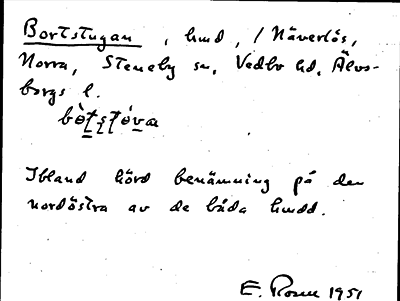 Bortstugan, hmd, /Näverlös,
Norra, Steneby sn, Vedbo hd, Älvs-
borgs l.
Ibland hörd benämning på den
nordöstra av de båda hmdd.
E. Rosén 1951